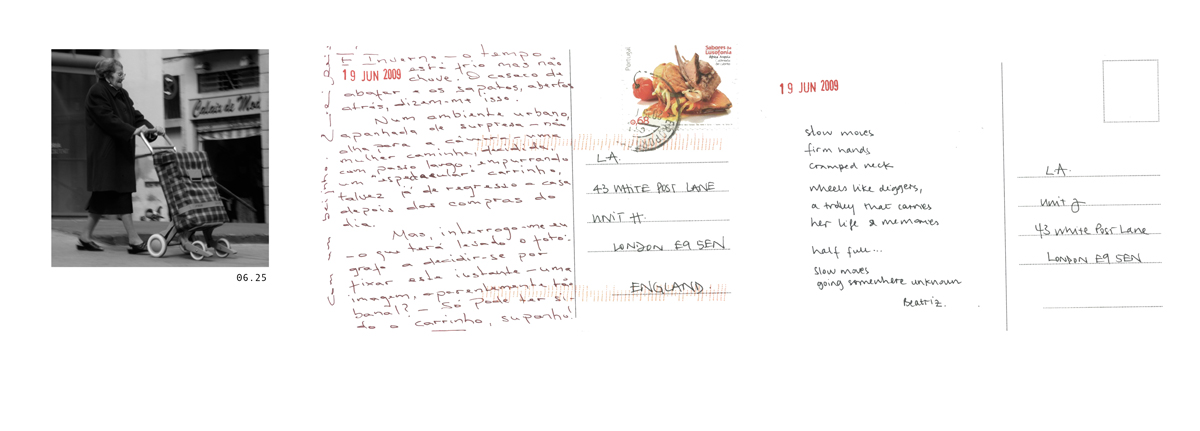 Calais de Mod
06.25
É Inverno – o tempo
está frio mas não
19 JUN 2009
chove. O casaco de
abafar e os sapatos, abertos
atrás, dizem-me isso.
Num ambiente urbano,
apanhada de surpresa – não
olha para a câmara – uma
mulher caminha, decidida,
com passo largo, empurrando
um "espetacular" carrinho,
talvez já de regresso a casa
depois das compras do
dia.
Mas, interrogo-me eu
– o que terá levado o fotó-
grafo a decidir-se por
fixar este instante – uma
imagem, aparentemente tão
banal? – Só pode ter si-
do o carrinho, suponho!
Portugal
Sabores da
Lusofonia
0,68
LA.
43 WHITE POST LANE
UNIT H.
LONDON E9 5EN
ENGLAND
19 JUN 2009
slow moves
firm hands
cramped neck
wheels like diggers,
a trolley that carries
her life & memories
half full...
slow moves
going somewhere unknown
Beatriz.
LA.
Unit J
43 White Post Lane
LONDON E9 5EN